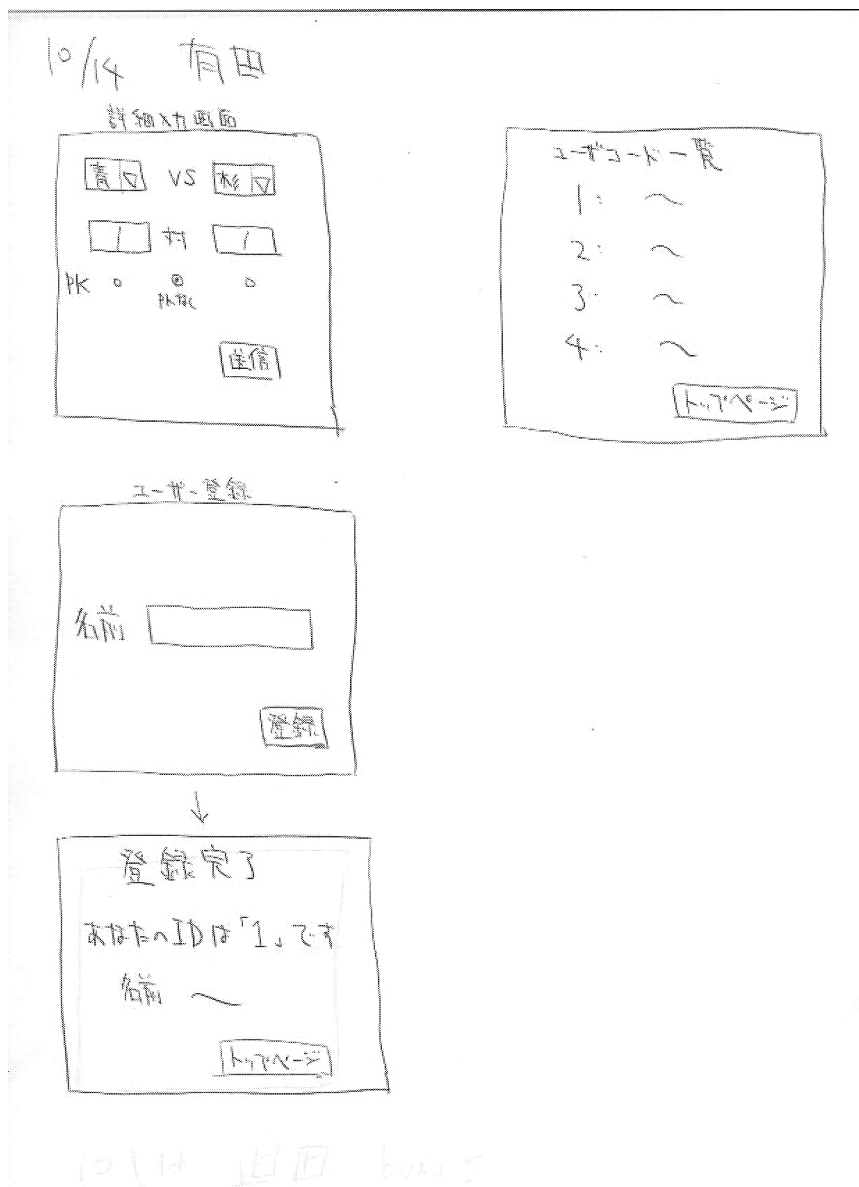 10/14 有田
詳細入力画面
青 ▽ VS 杉 ▽
1 対 1
PK ○ ◉ ○
PKなし
送信
ユーザコード一覧
1: 〜
2: 〜
3: 〜
4: 〜
トップページ
ユーザー登録
名前
登録
↓
登録完了
あなたのIDは「1」です
名前 〜
トップページ